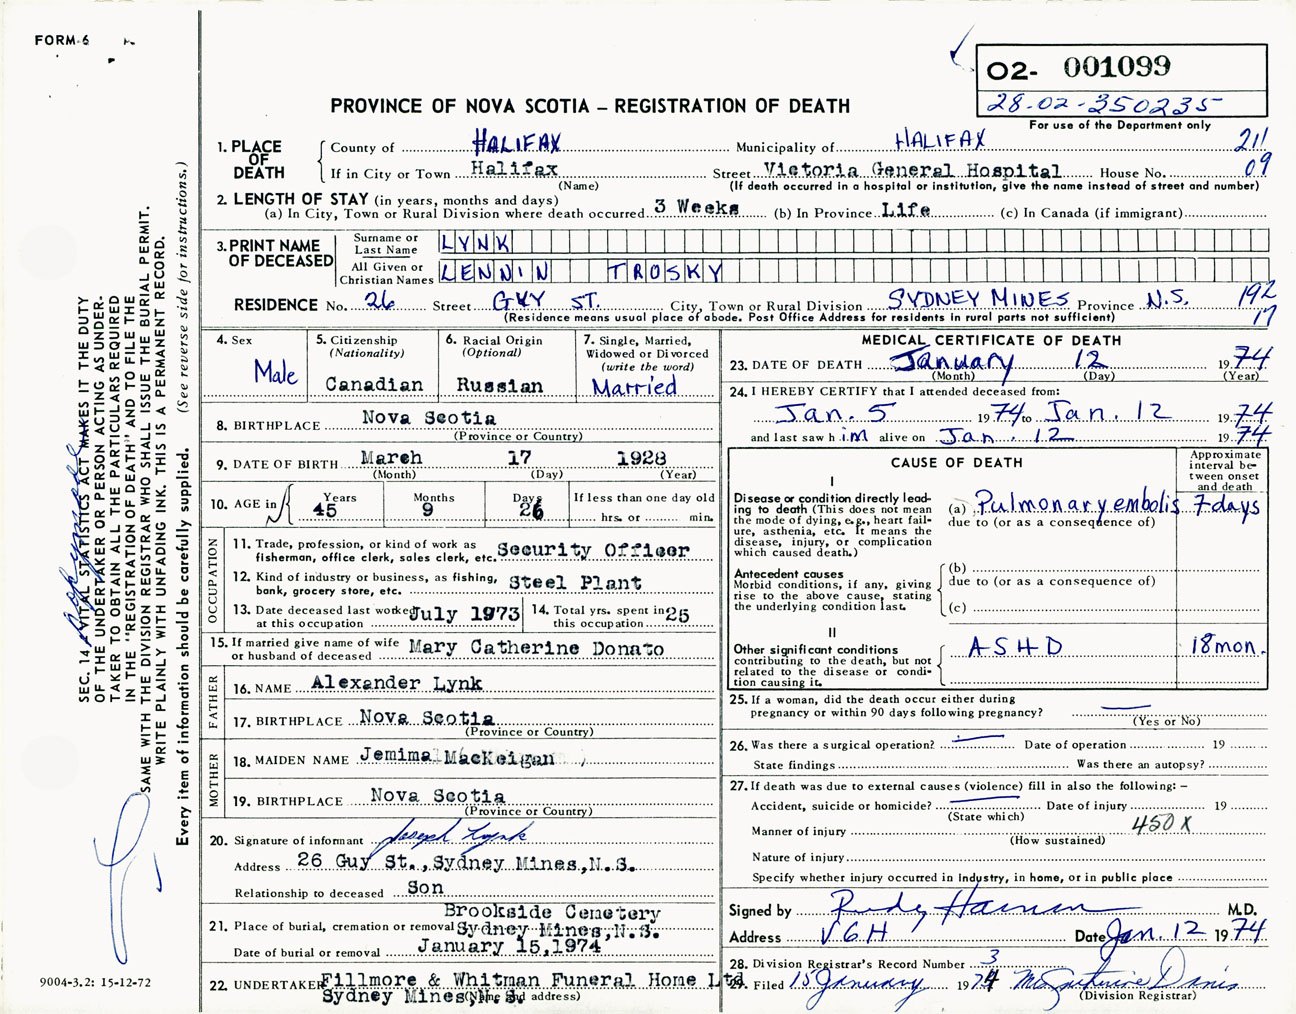 FORM-6
O2- 001099
28-02-350235
For use of the Department only
PROVINCE OF NOVA SCOTIA – REGISTRATION OF DEATH
SEC. 14 VITAL STATISTICS ACT MAKES IT THE DUTY
OF THE UNDERTAKER OR PERSON ACTING AS UNDER-
TAKER TO OBTAIN ALL THE PARTICULARS REQUIRED
IN THE "REGISTRATION OF DEATH" AND TO FILE THE
SAME WITH THE DIVISION REGISTRAR WHO SHALL ISSUE THE BURIAL PERMIT.
WRITE PLAINLY WITH UNFADING INK. THIS IS A PERMANENT RECORD.
Every item of information should be carefully supplied. (See reverse side for instructions.)
1. PLACE OF DEATH
County of HALIFAX Municipality of HALIFAX 211
If in City or Town Halifax Street Victoria General Hospital House No. 09
(Name) (If death occurred in a hospital or institution, give the name instead of street and number)
2. LENGTH OF STAY (in years, months and days)
(a) In City, Town or Rural Division where death occurred 3 Weeks (b) In Province Life (c) In Canada (if immigrant)
3. PRINT NAME OF DECEASED
Surname or Last Name LYNK
All Given or Christian Names LENNIN TROSKY
RESIDENCE No. 26 Street GUY ST. City, Town or Rural Division SYDNEY MINES Province N.S. 192
(Residence means usual place of abode. Post Office Address for residents in rural parts not sufficient) 17
4. Sex
Male
5. Citizenship
(Nationality)
Canadian
6. Racial Origin
(Optional)
Russian
7. Single, Married,
Widowed or Divorced
(write the word)
Married
8. BIRTHPLACE Nova Scotia
(Province or Country)
9. DATE OF BIRTH March 17 1928
(Month) (Day) (Year)
10. AGE in
Years 45
Months 9
Days 26
If less than one day old
hrs. or min.
OCCUPATION
11. Trade, profession, or kind of work as
fisherman, office clerk, sales clerk, etc. Security Officer
12. Kind of industry or business, as fishing,
bank, grocery store, etc. Steel Plant
13. Date deceased last worked
at this occupation July 1973
14. Total yrs. spent in
this occupation 25
15. If married give name of wife
or husband of deceased Mary Catherine Donato
FATHER
16. NAME Alexander Lynk
17. BIRTHPLACE Nova Scotia
(Province or Country)
MOTHER
18. MAIDEN NAME Jemima MacKeigan
19. BIRTHPLACE Nova Scotia
(Province or Country)
20. Signature of informant Joseph Lynk
Address 26 Guy St., Sydney Mines, N.S.
Relationship to deceased Son
Brookside Cemetery
21. Place of burial, cremation or removal Sydney Mines, N.S.
Date of burial or removal January 15, 1974
22. UNDERTAKER Fillmore & Whitman Funeral Home Ltd
Sydney Mines, N.S.
(Name and address)
MEDICAL CERTIFICATE OF DEATH
23. DATE OF DEATH January 12 1974
(Month) (Day) (Year)
24. I HEREBY CERTIFY that I attended deceased from:
Jan. 5 1974 to Jan. 12 1974
and last saw him alive on Jan. 12 1974
CAUSE OF DEATH
Approximate
interval be-
tween onset
and death
I
Disease or condition directly lead-
ing to death (This does not mean
the mode of dying, e.g., heart fail-
ure, asthenia, etc. It means the
disease, injury, or complication
which caused death.)
(a) Pulmonary embolis 7 days
due to (or as a consequence of)
Antecedent causes
Morbid conditions, if any, giving
rise to the above cause, stating
the underlying condition last.
(b)
due to (or as a consequence of)
(c)
II
Other significant conditions
contributing to the death, but not
related to the disease or condi-
tion causing it.
ASHD 18 mon.
25. If a woman, did the death occur either during
pregnancy or within 90 days following pregnancy?
(Yes or No)
26. Was there a surgical operation? Date of operation 19
State findings Was there an autopsy?
27. If death was due to external causes (violence) fill in also the following: –
Accident, suicide or homicide? Date of injury 19
(State which)
Manner of injury 450 X
(How sustained)
Nature of injury
Specify whether injury occurred in Industry, in home, or in public place
Signed by Rudy M.D.
Address V G H Date Jan. 12 1974
28. Division Registrar's Record Number 3
29. Filed 15 January 1974
(Division Registrar)
9004-3.2: 15-12-72